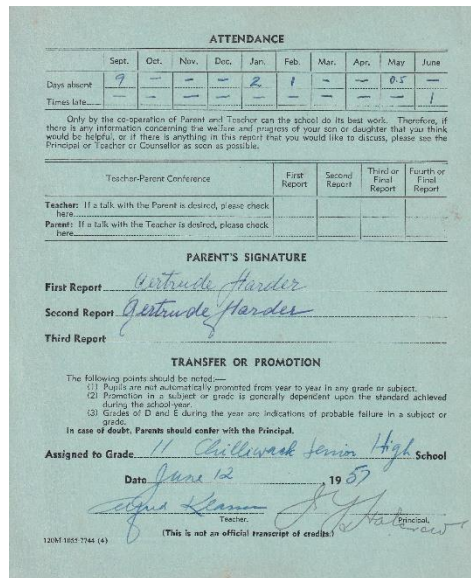 ATTENDANCE
Sept. Oct. Nov. Dec. Jan. Feb. Mar. Apr. May June
Days absent 9 — — — 2 1 — — 0.5 —
Times late — — — — — — — — — 1
Only by the co-operation of Parent and Teacher can the school do its best work. Therefore, if
there is any information concerning the welfare and progress of your son or daughter that you think
would be helpful, or if there is anything in this report that you would like to discuss, please see the
Principal or Teacher or Counsellor as soon as possible.
Teacher-Parent Conference First Report Second Report Third or Final Report Fourth or Final Report
Teacher: If a talk with the Parent is desired, please check
here
Parent: If a talk with the Teacher is desired, please check
here
PARENT'S SIGNATURE
First Report Gertrude Harder
Second Report Gertrude Harder
Third Report
TRANSFER OR PROMOTION
The following points should be noted:—
(1) Pupils are not automatically promoted from year to year in any grade or subject.
(2) Promotion in a subject or grade is generally dependent upon the standard achieved
during the school-year.
(3) Grades of D and E during the year are indications of probable failure in a subject or
grade.
In case of doubt, Parents should confer with the Principal.
Assigned to Grade 11 Chilliwack Senior High School
Date June 12, 1957
Teacher. Principal.
(This is not an official transcript of credits.)